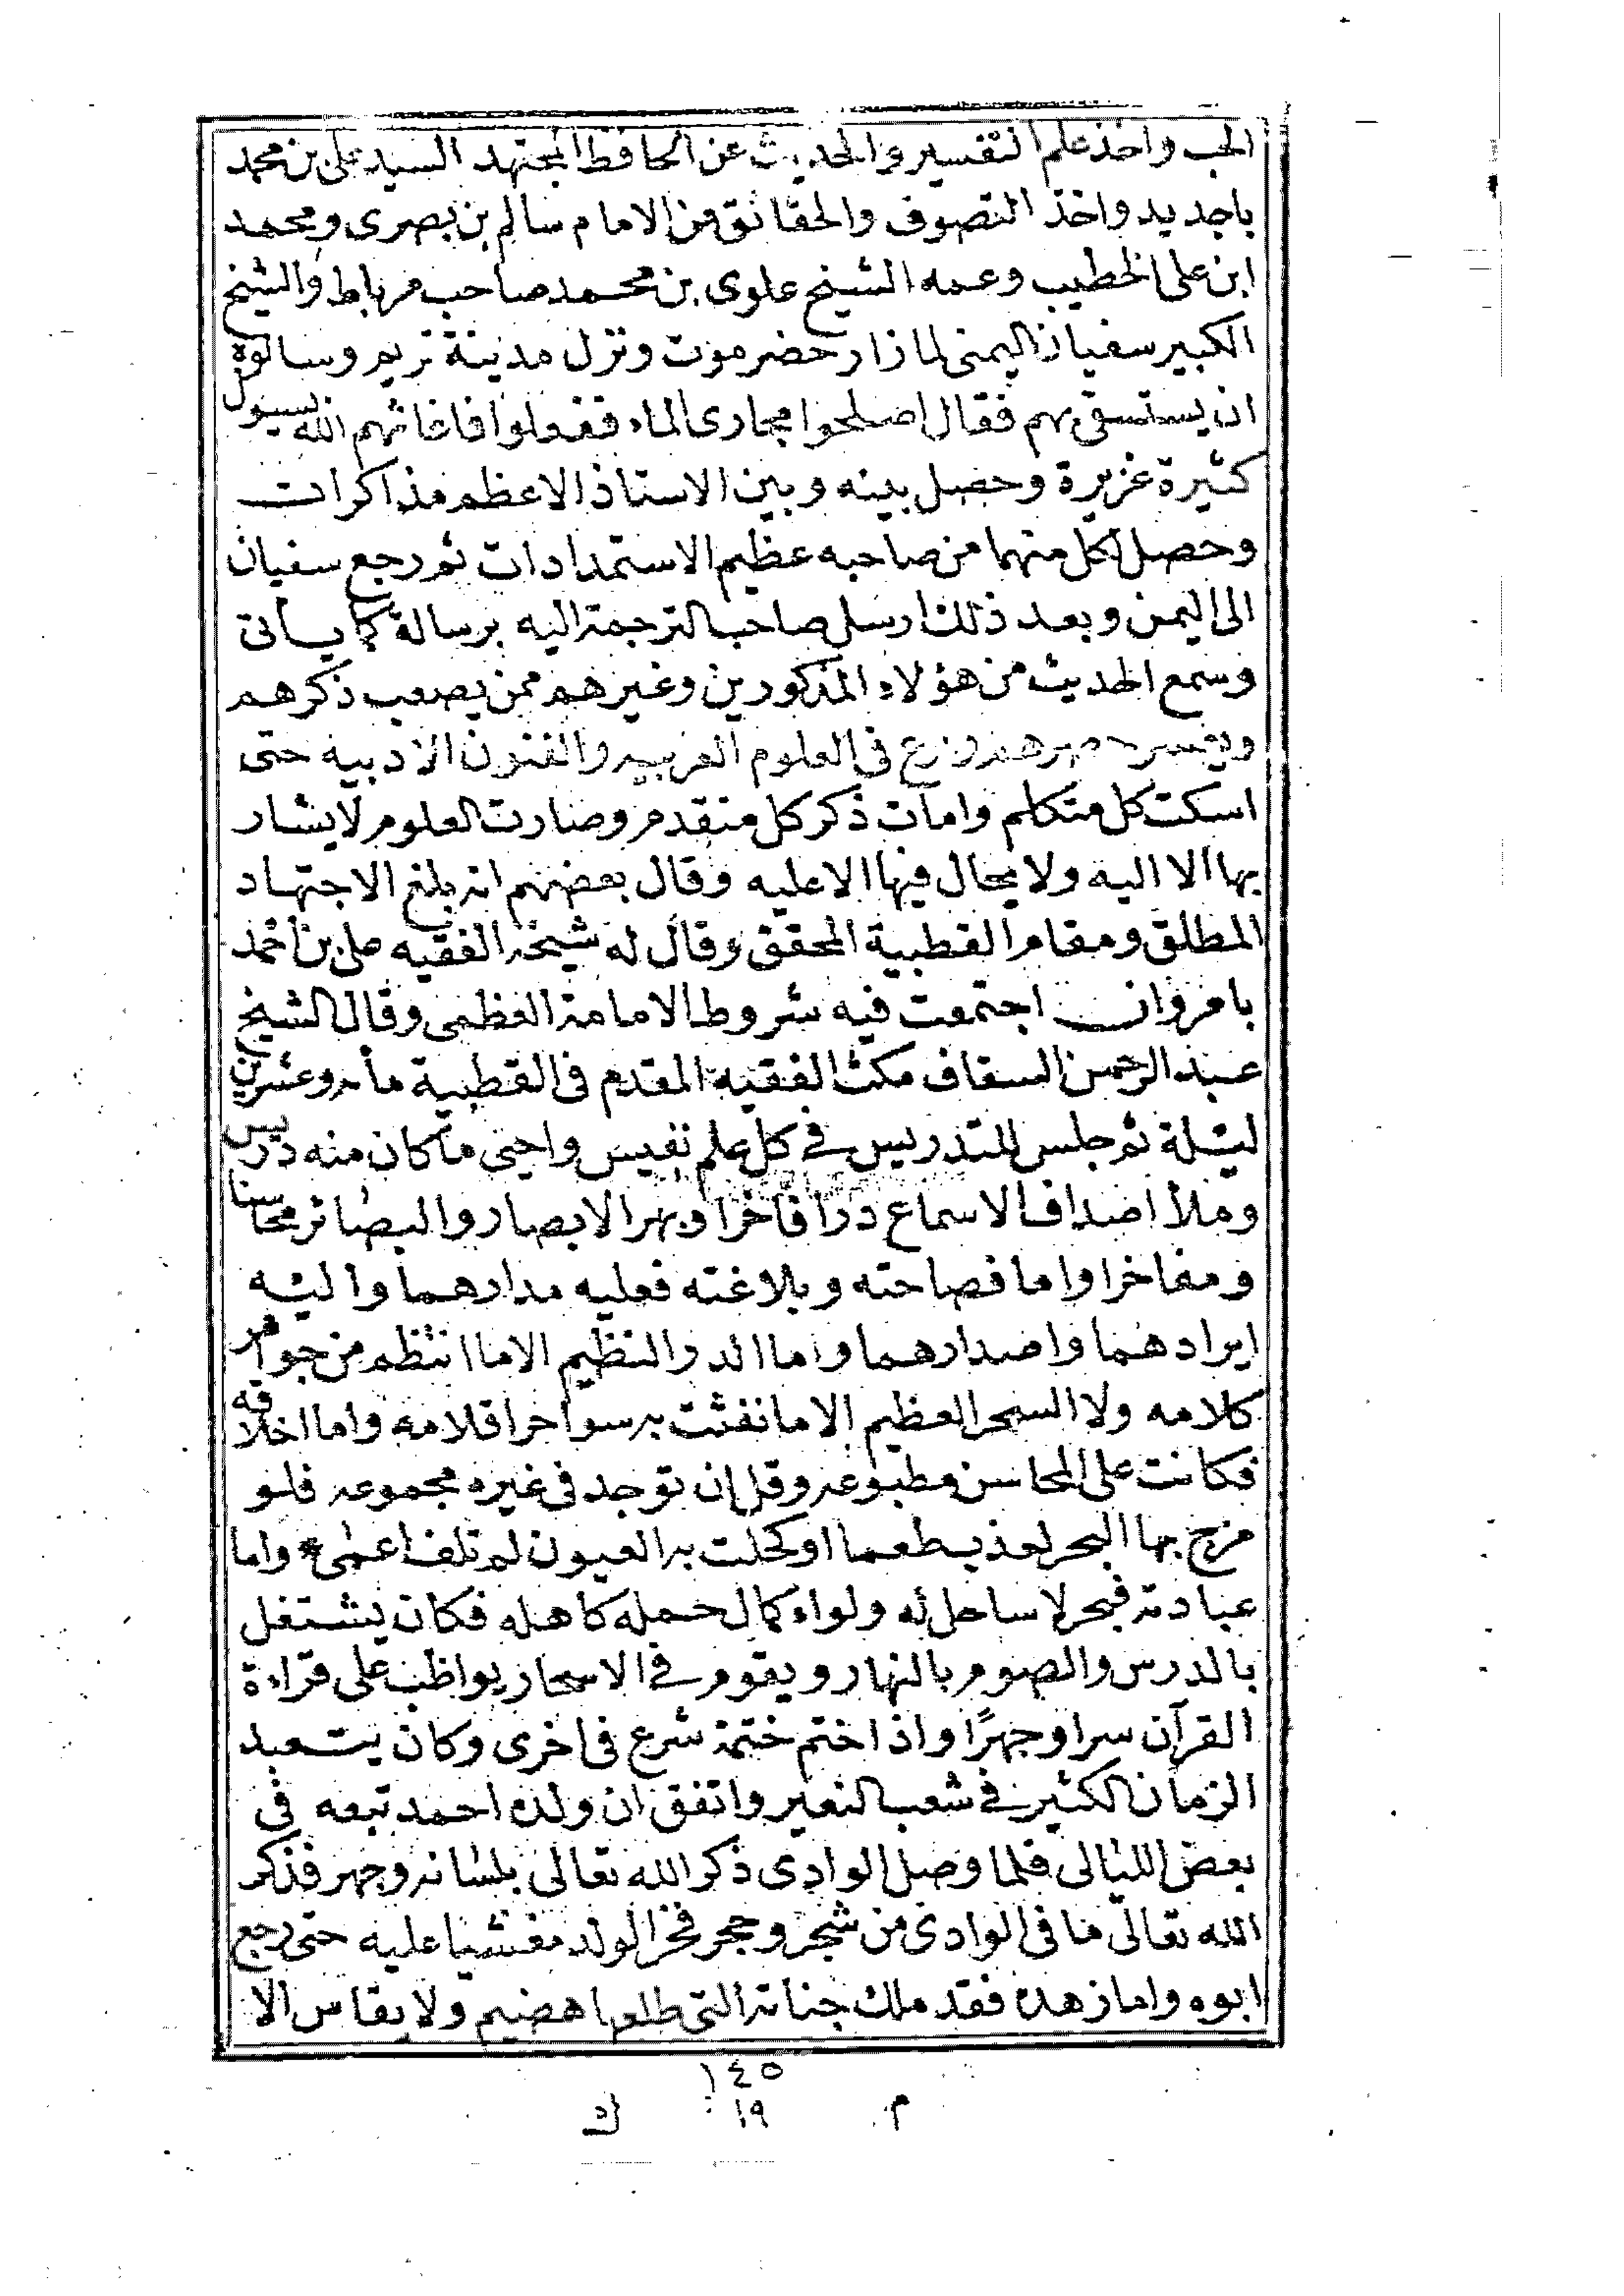 الحب واخذ علم التفسير والحديث عن الحافظ المجتهد السيد على بن محمد
باجديد واخذ التصوف والحقائق من الامام سالم بن بصرى ومحمد
ابن على الخطيب وعمه الشيخ علوى بن محمد صاحب مرباط والشيخ
الكبير سفيان اليمنى لما زار حضرموت ونزل مدينة تريم وسالوه
ان يستسقى بهم فقال اصلحوا مجارى الماء ففعلوا فاغاثهم الله بسيول
كثيرة غزيرة وحصل بينه وبين الاستاذ الاعظم مذاكرات
وحصل لكل منهما من صاحبه عظيم الاستمدادات ثم رجع سفيان
الى اليمن وبعد ذلك ارسل صاحب الترجمة اليه برسالة كما يأتى
وسمع الحديث من هؤلاء المذكورين وغيرهم ممن يصعب ذكرهم
ويعسر حصرهم وبرع فى العلوم العربيه والفنون الادبيه حتى
اسكت كل متكلم وامات ذكر كل متقدم وصارت العلوم لا يشار
بها الا اليه ولا يحال فيها الا عليه وقال بعضهم انه بلغ الاجتهاد
المطلق ومقام القطبية المحقق وقال له شيخه الفقيه على بن احمد
بامروان اجتمعت فيه شروط الامامة العظمى وقال الشيخ
عبد الرحمن السقاف مكث الفقيه المقدم فى القطبية مأه وعشرين
ليلة ثم جلس للتدريس فى كل علم نفيس واحيى ما كان منه دريس
وملأ اصداف الاسماع درا فاخرا وبهر الابصار والبصائر محاسنا
ومفاخرا واما فصاحته وبلاغته فعليه مدارهما واليه
ايرادهما واصدارهما واما الدر والنظيم الا ما انتظم من جواهر
كلامه ولا السحر العظيم الا ما نفثت به سواحر اقلامه واما اخلاقه
فكانت على المحاسن مطبوعه وقل ان توجد فى غيره مجموعه فلو
مزج بها البحر لعذب طعما او كحلت به العيون لم تلف اعمى واما
عبادته فبحر لا ساحل له ولواء كمال حمله كاهله فكان يشتغل
بالدرس والصوم بالنهار ويقوم فى الاسحار يواظب على قراءة
القرآن سرا وجهرًا واذا ختم ختمة شرع فى اخرى وكان يتعبد
الزمان الكثير فى شعب النعير واتفق ان ولده احمد تبعه فى
بعض الليالى فلما وصل الوادى ذكر الله تعالى بلسانه وجهر فذكر
الله تعالى ما فى الوادى من شجر وحجر فخر الولد مغشيا عليه حتى رجع
ابوه واما زهده فقد ملك جنانه التى طلعها هضيم ولا يقاس الا
١٤٥
م ١٩ ك